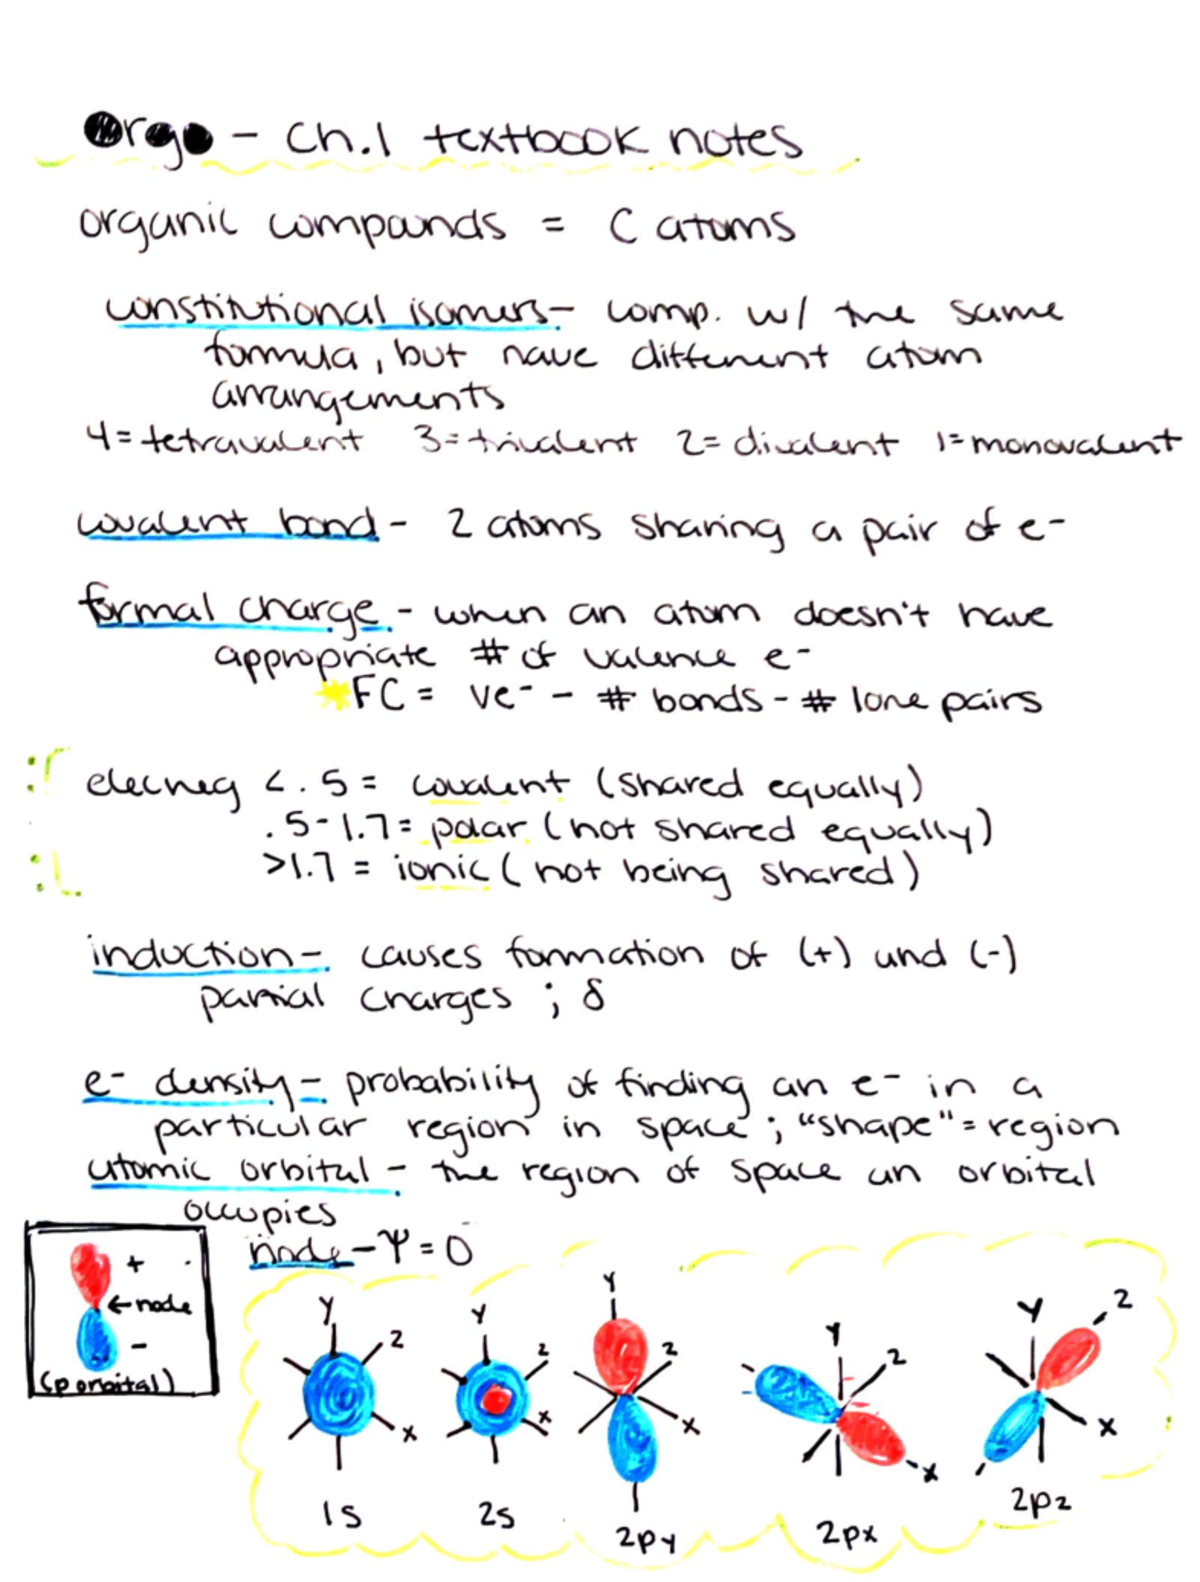 Orgo - Ch.1 textbook notes
organic compounds = C atoms
constitutional isomers - comp. w/ the same
formula, but have different atom
arrangements
4=tetravalent 3=trivalent 2=divalent 1=monovalent
covalent bond - 2 atoms sharing a pair of e-
formal charge - when an atom doesn't have
appropriate # of valence e-
*FC = ve- - # bonds - # lone pairs
elecneg <.5 = covalent (shared equally)
.5-1.7 = polar (not shared equally)
>1.7 = ionic (not being shared)
induction - causes formation of (+) and (-)
partial charges ; δ
e- density - probability of finding an e- in a
particular region in space ; "shape" = region
atomic orbital - the region of space an orbital
occupies
node - Ψ = 0
+
← node
-
(p orbital)
Y Z X
1s
Y Z X
2s
Y Z X
2py
Y Z X
2px
Y Z X
2pz